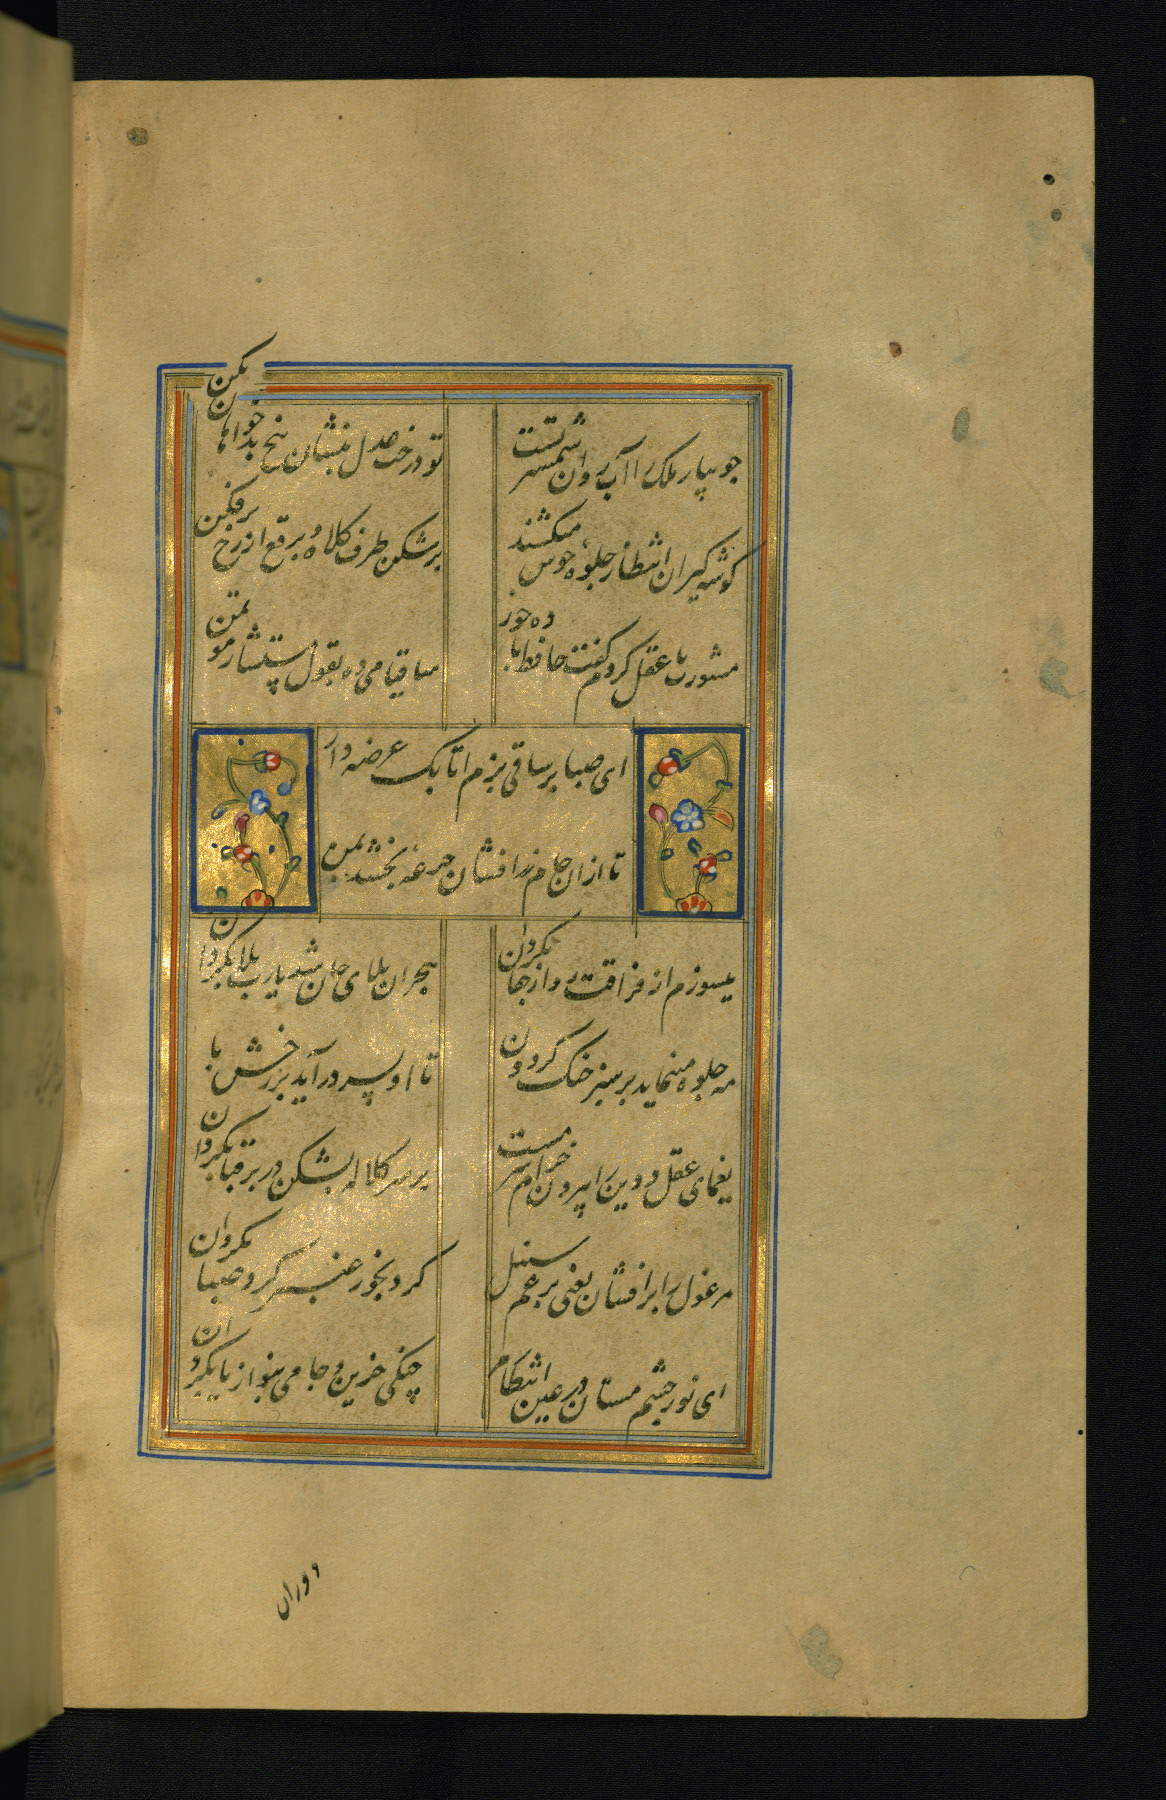 جویبار ملک را آب روان شمشیر تست
تو درخت عدل بنشان بیخ بدخواهان بکن
گوشه گیران انتظار جلوه خوش میکشند
برشکن طرف کلاه و برقع از رخ برفکن
مشورت با عقل کردم گفت حافظ باده خور
ساقیا می ده بقول مستشار موتمن
ای صبا بر ساقی بزم اتابک عرضه دار
تا از ان جام زرافشان جرعه بخشد بمن
میسوزم از فراقت رو از جفا بگردان
هجران بلای جان شد یارب بلا بگردان
مه جلوه مینماید بر سبز خنک گردون
تا او بسر درآید بر رخش پا بگردان
یغمای عقل و دین را بیرون خرام سرمست
بر سر کلاه بشکن در بر قبا بگردان
مرغول را برافشان یعنی برغم سنبل
گرد بخور عنبر گرد صبا بگردان
ای نور چشم مستان در عین انتظارم
چنگی حزین و جامی بنواز یا بگردان
دوران